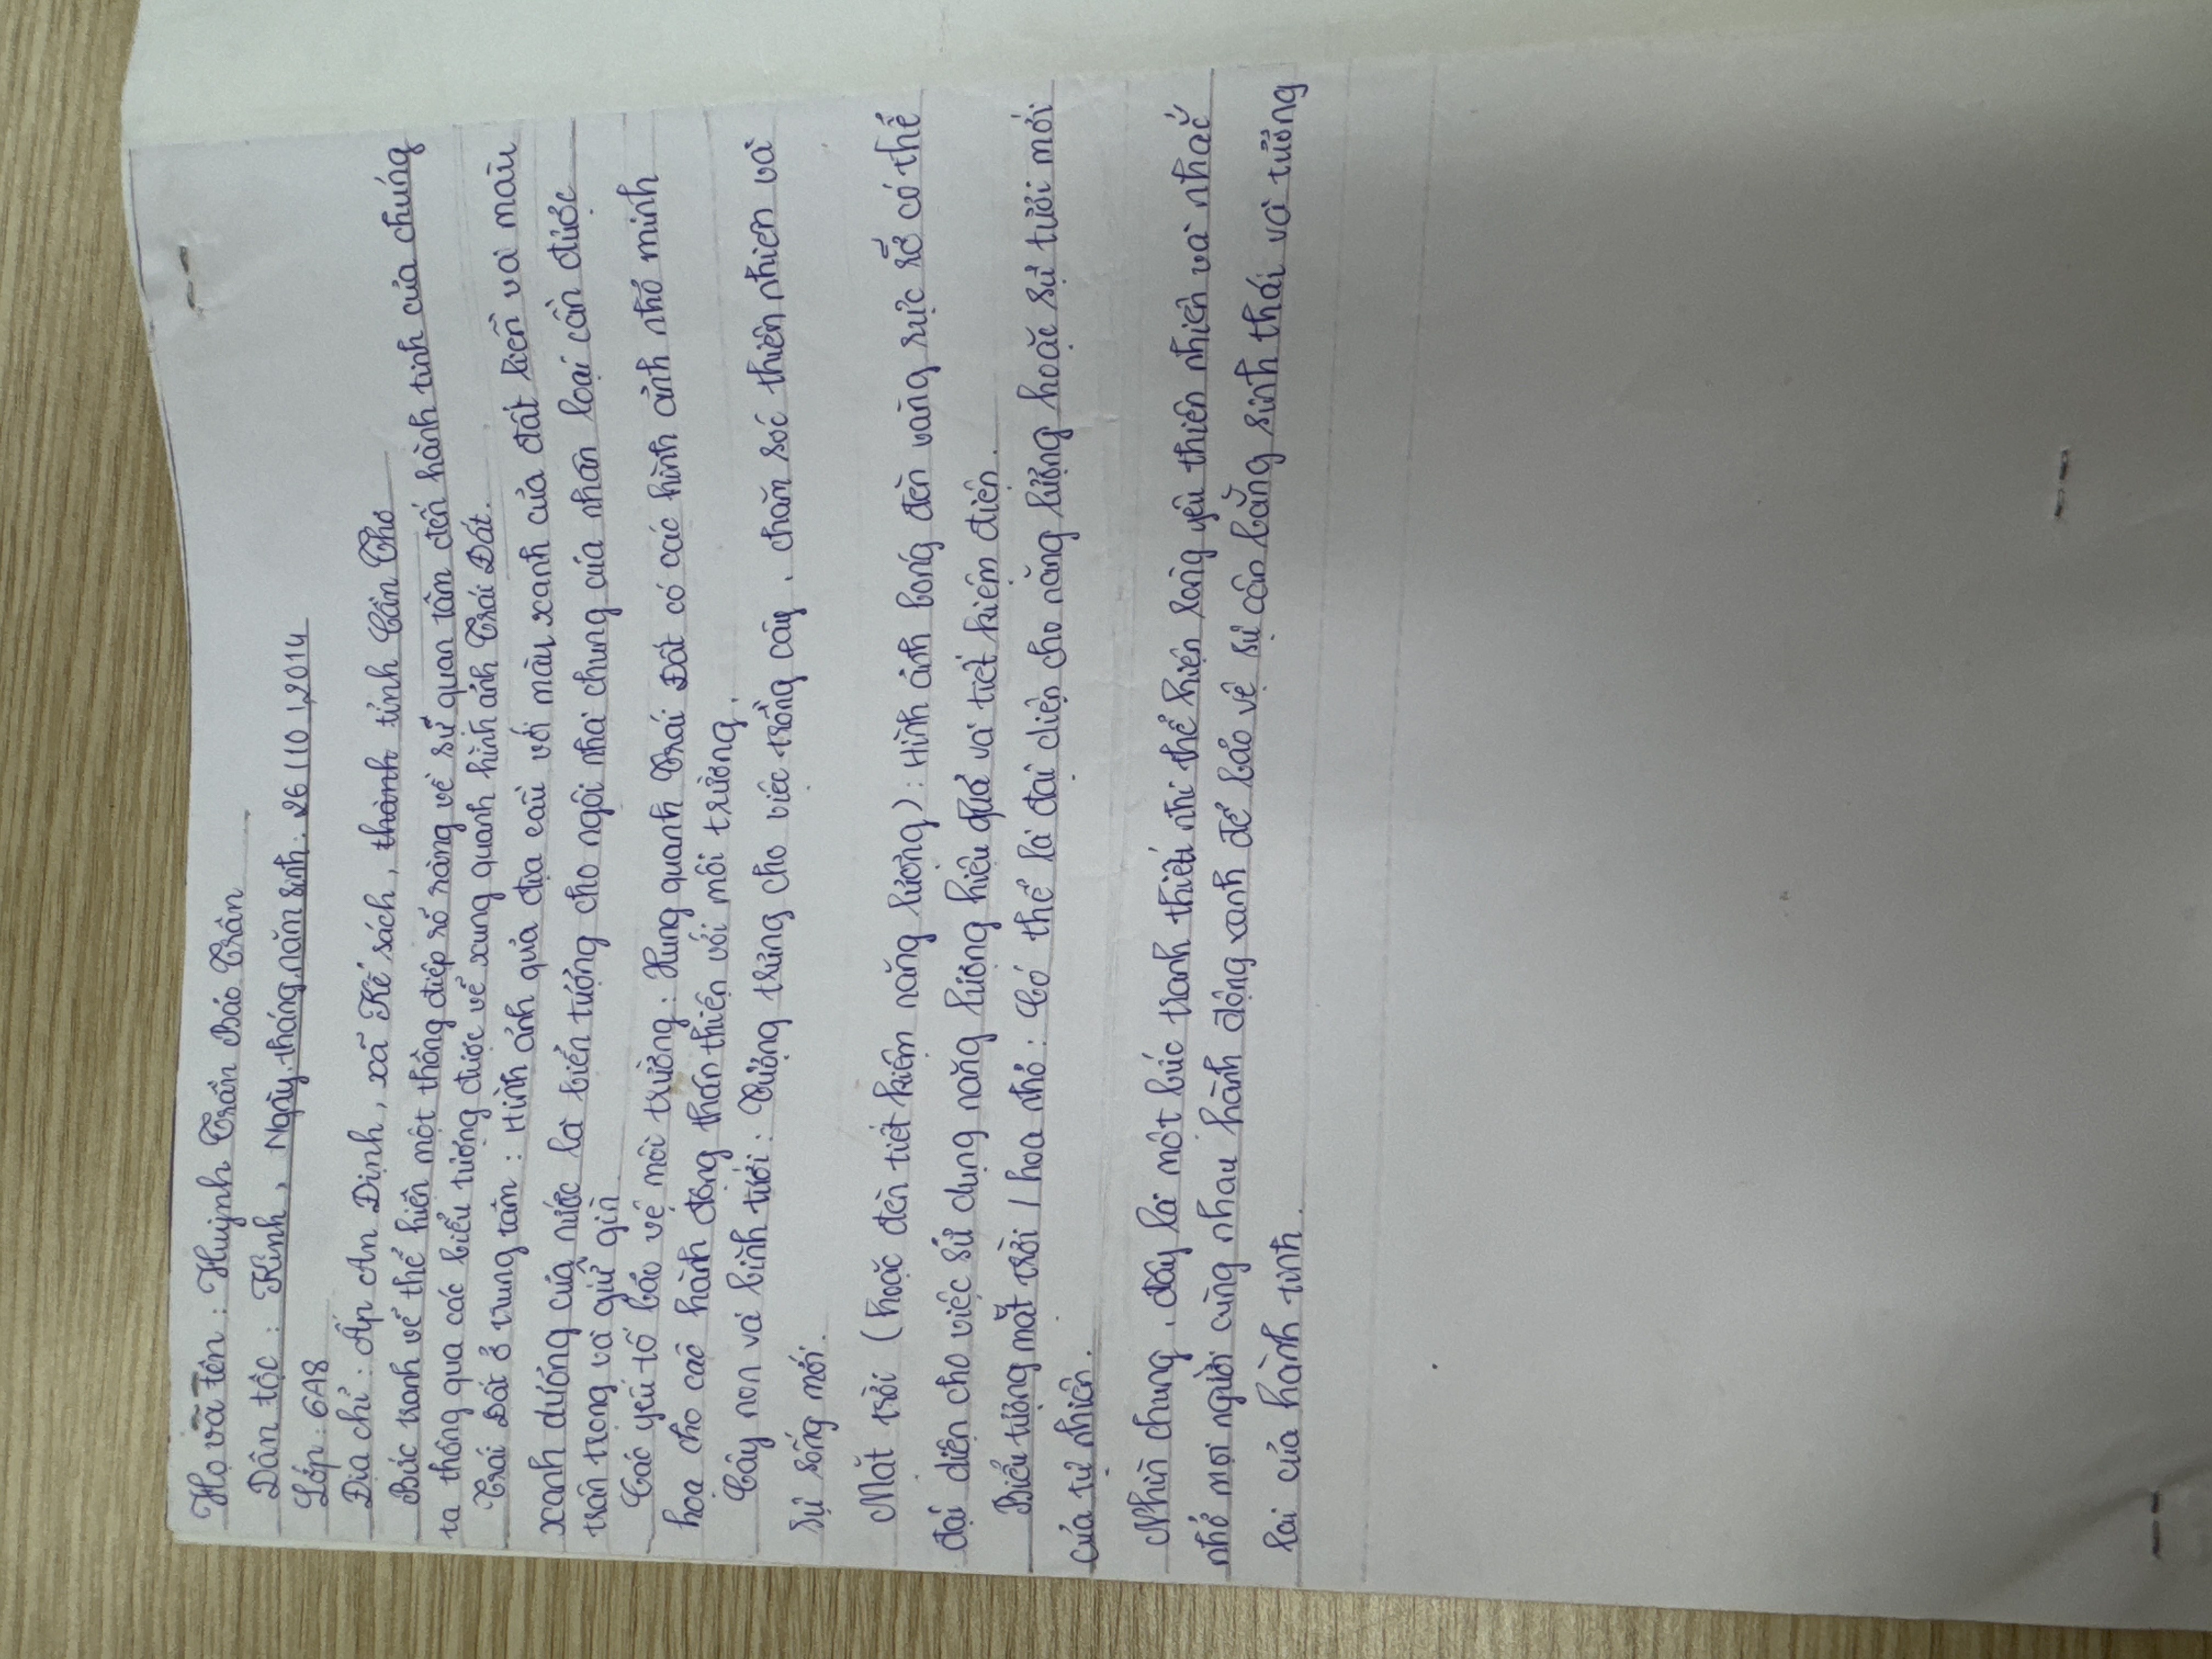 Họ và tên : Huỳnh Trần Bảo Trân
Dân tộc : Kinh , Ngày, tháng, năm sinh : 26 / 10 / 2014
Lớp : 6A8
Địa chỉ : Ấp An Định , xã Kế sách , thành tỉnh Cần Thơ
Bức tranh vẽ thể hiển một thông điệp rõ ràng về sự quan tâm đến hành tinh của chúng
ta thông qua các biểu tượng được vẽ xung quanh hình ảnh Trái Đất.
Trái Đất ở trung tâm : Hình ảnh quả địa cầu với màu xanh của đất liền và màu
xanh dương của nước là biển tượng cho ngôi nhà chung của nhân loại cần được
trân trọng và giữ gìn
Các yếu tố bảo vệ môi trường : Xung quanh Trái Đất có các hình ảnh nhỏ minh
họa cho các hành động thân thiện với môi trường.
Cây non và bình tưới : Tượng trưng cho việc trồng cây , chăm sóc thiên nhiên và
sự sống mới.
Mặt trời (hoặc đèn tiết kiệm năng lượng) : Hình ảnh bóng đèn vàng rực rỡ có thể
đại diện cho việc sử dụng năng lượng hiệu quả và tiết kiệm điện.
Biểu tượng mặt trời / hoa nhỏ : Có thể là đại diện cho năng lượng hoặc sự tươi mới
của tự nhiên.
Nhìn chung , đây là một bức tranh thiếu nhi thể hiện lòng yêu thiên nhiên và nhắc
nhở mọi người cùng nhau hành động xanh để bảo vệ sự cân bằng sinh thái và tương
lai của hành tinh.